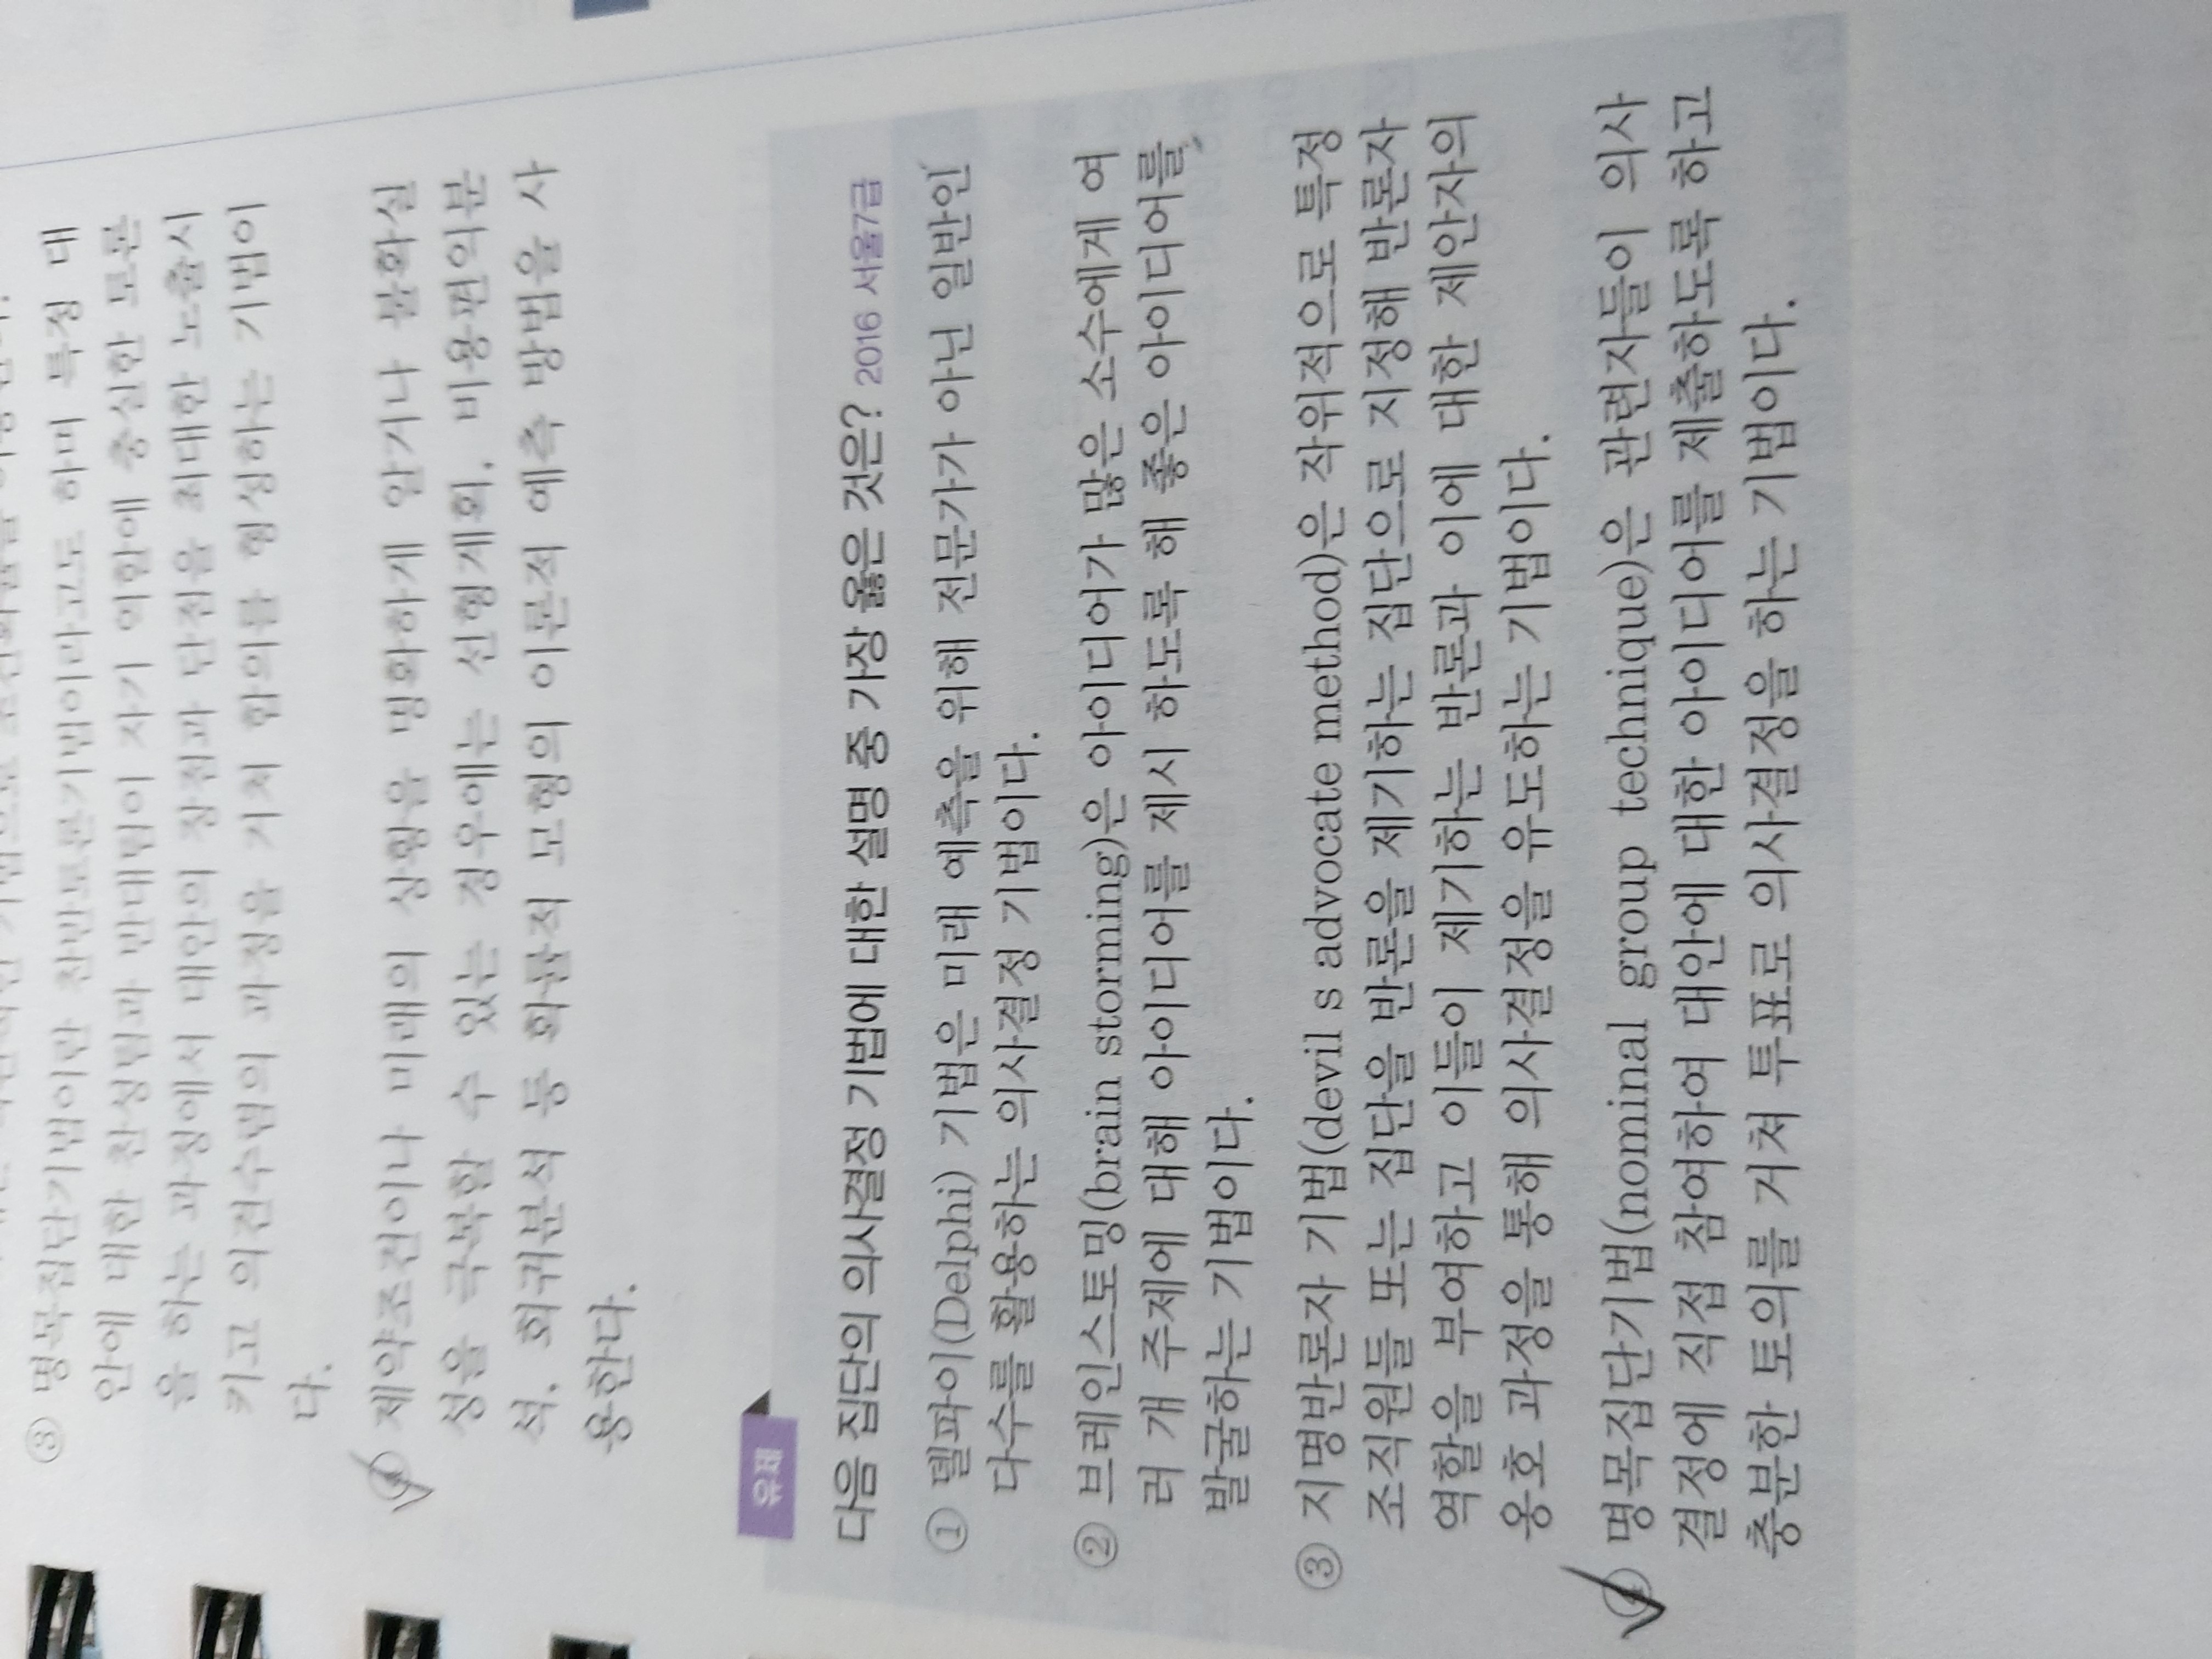 ③ 명목집단기법이란 찬반토론기법이라고도 하며 특정 대
안에 대한 찬성팀과 반대팀이 자기 역할에 충실한 토론
을 하는 과정에서 대안의 장점과 단점을 최대한 노출시
키고 의견수렴의 과정을 거쳐 합의를 형성하는 기법이
다.
제약조건이나 미래의 상황을 명확하게 알거나 불확실
성을 극복할 수 있는 경우에는 선형계획, 비용편익분
석, 회귀분석 등 확률적 모형의 이론적 예측 방법을 사
용한다.
유제
다음 집단의 의사결정 기법에 대한 설명 중 가장 옳은 것은? 2016 서울7급
① 델파이(Delphi) 기법은 미래 예측을 위해 전문가가 아닌 일반인
다수를 활용하는 의사결정 기법이다.
② 브레인스토밍(brain storming)은 아이디어가 많은 소수에게 여
러 개 주제에 대해 아이디어를 제시 하도록 해 좋은 아이디어를
발굴하는 기법이다.
③ 지명반론자 기법(devil s advocate method)은 작위적으로 특정
조직원들 또는 집단을 반론을 제기하는 집단으로 지정해 반론자
역할을 부여하고 이들이 제기하는 반론과 이에 대한 제안자의
옹호 과정을 통해 의사결정을 유도하는 기법이다.
④ 명목집단기법(nominal group technique)은 관련자들이 의사
결정에 직접 참여하여 대안에 대한 아이디어를 제출하도록 하고
충분한 토의를 거쳐 투표로 의사결정을 하는 기법이다.